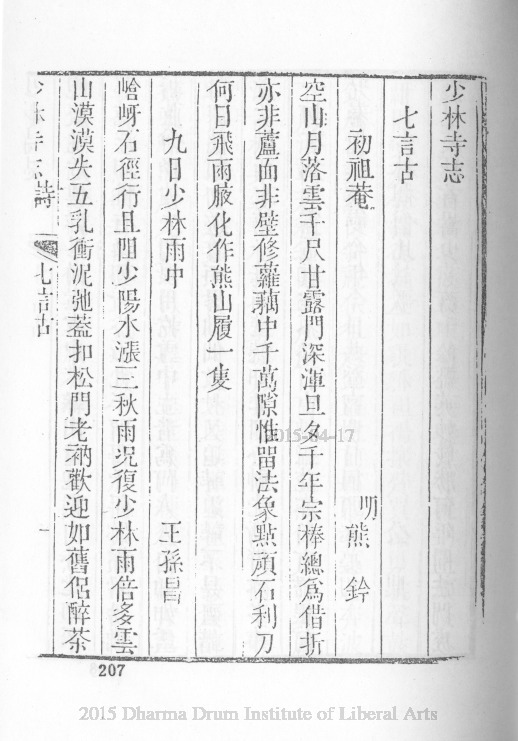 少林寺志
七言古
初祖菴
明熊鈐
空山月落雲千尺甘露門深渾旦夕千年宗棒總為借折
亦非蘆面非壁修蘿藕中千萬隙惟留法象點頑石利刀
何日飛雨腋化作熊山履一隻
九日少林雨中
王孫昌
崄岈石徑行且阻少陽水漲三秋雨況復少林雨倍多雲
山漠漠失五乳衝泥弛蓋扣松門老衲歡迎如舊侶醉茶
少林寺志詩
七言古
一
207
2015-04-17
2015 Dharma Drum Institute of Liberal Arts